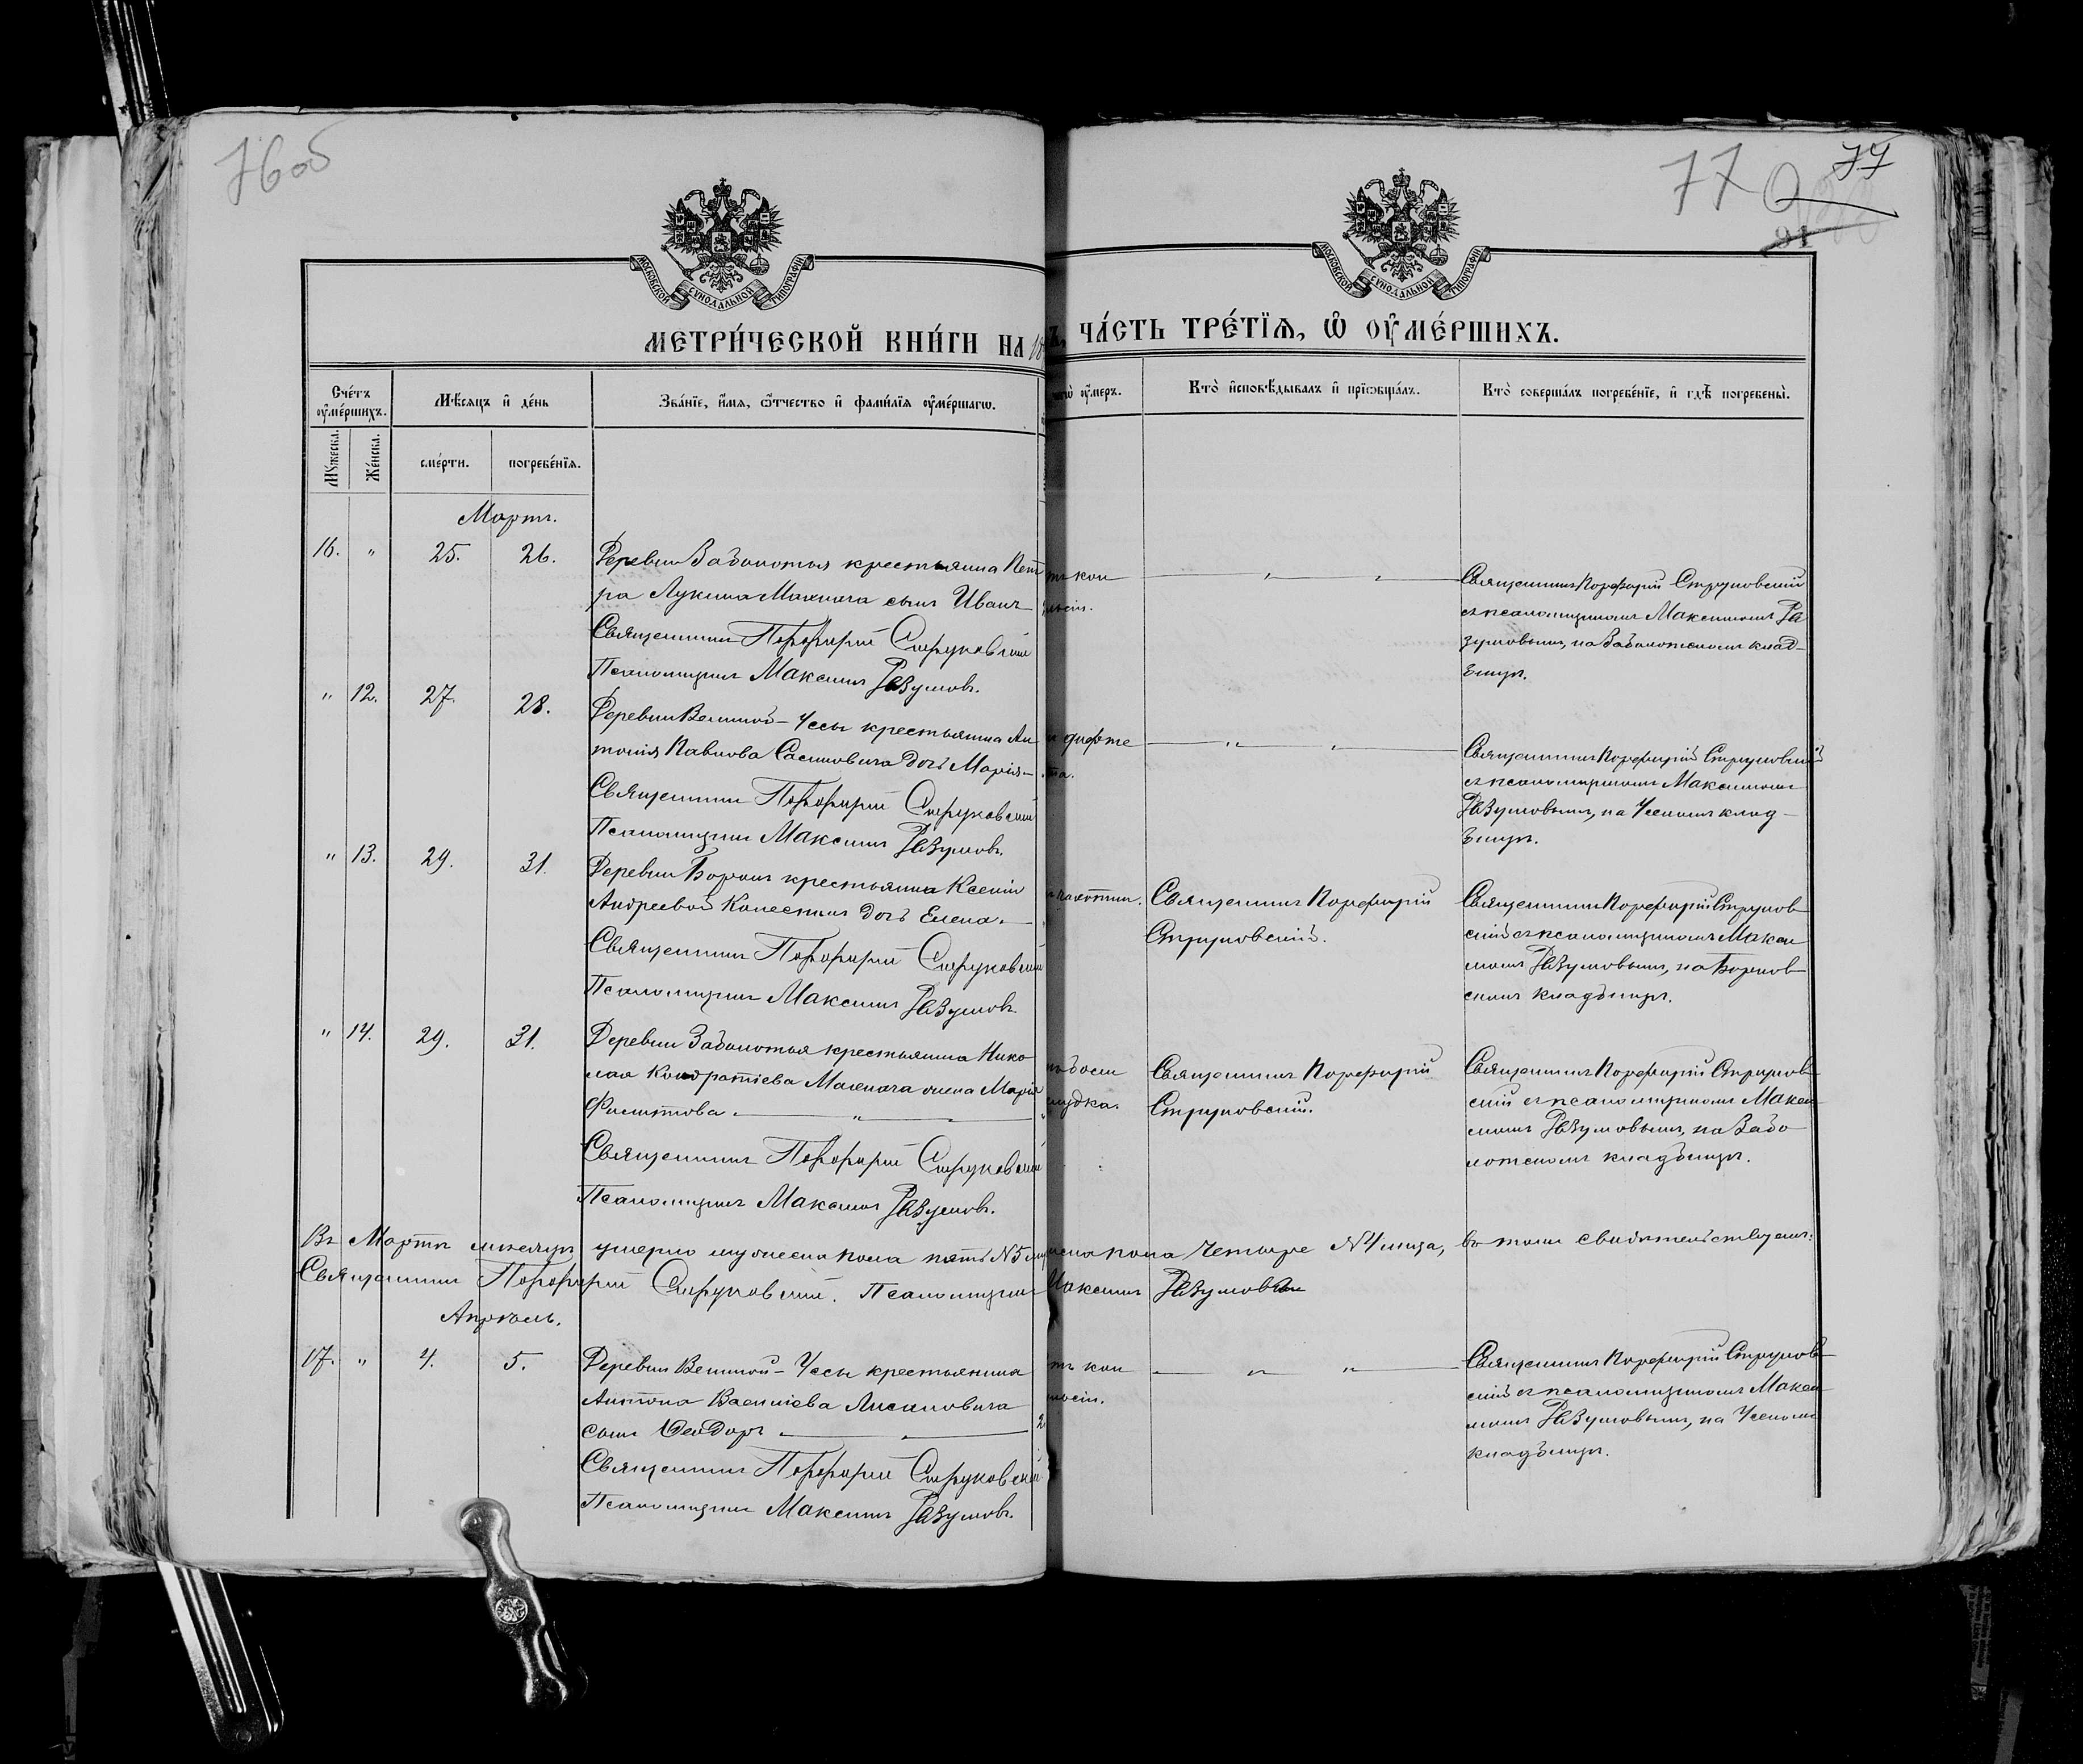 76 об
77
77
91
МОСКОВСКОЙ СУНОДАЛЬНОЙ ТИПОГРАФІИ
МОСКОВСКОЙ СУНОДАЛЬНОЙ ТИПОГРАФІИ
МЕТРИ́ЧЕСКОЙ КНИ́ГИ НА 18
ЧА́СТЬ ТРЕ́ТЇѦ, Ѡ ОУМЕ́РШИХЪ.
Сче́тъ оуме́ршихъ.
Мѣ́сяцъ и де́нь
Зва́нїе, и́мя, ѻ́тчество и фами́лїя оуме́ршагѡ.
чегѡ̀ оу́меръ.
Кто̀ исповѣ́дывалъ и прїѡбща́лъ.
Кто̀ соверша́лъ погребе́нїе, и гдѣ̀ погребены̀.
Му́жеска. Же́нска.
сме́рти. погребе́нїя.
Мартъ.
16. " 25. 26.
Деревни Заболотья крестьянина Пет
ра Лукина Махнача сынъ Иванъ
Священникъ Порфирій Струковскій
Псаломщикъ Максимъ Разумовъ.
кон
Священникъ Порфирій Струковскій
съ псаломщикомъ Максимомъ Ра
зумовымъ, на Заболотскомъ клад-
бищѣ.
" 12. 27. 28.
Деревни Великой-Уссы крестьянина Ан
тонія Павлова Сасиновича дочь Марія
Священникъ Порфирій Струковскій
Псаломщикъ Максимъ Разумовъ.
дифте
та.
Священникъ Порфирій Струковскій
съ псаломщикомъ Максимомъ
Разумовымъ, на Усскомъ клад-
бищѣ.
" 13. 29. 31.
Деревни Боркъ крестьянки Ксеніи
Андреевой Колесникъ дочь Елена.
Священникъ Порфирій Струковскій
Псаломщикъ Максимъ Разумовъ.
чахотки.
Священникъ Порфирій
Струковскій.
Священникъ Порфирій Струков
скій съ псаломщикомъ Макси
момъ Разумовымъ, на Борков
скомъ кладбищѣ.
" 14. 29. 31.
Деревни Заболотья крестьянина Нико
лая Кондратіева Махнача жена Марія
Филиппова
Священникъ Порфирій Струковскій
Псаломщикъ Максимъ Разумовъ.
лудка.
Священникъ Порфирій
Струковскій.
Священникъ Порфирій Струков
скій съ псаломщикомъ Макси
момъ Разумовымъ, на Забо
лотскомъ кладбищѣ.
Въ Мартѣ мѣсяцѣ умерло мужеска пола пять №5 женска пола четыре №4 лица, въ томъ свидѣтельствуемъ:
Священникъ Порфирій Струковскій. Псаломщикъ Максимъ Разумовъ
Апрѣль.
17. " 4. 5.
Деревни Великой-Уссы крестьянина
Антона Василіева Лисиновича
сынъ Ѳеодоръ
Священникъ Порфирій Струковскій
Псаломщикъ Максимъ Разумовъ.
кон
Священникъ Порфирій Струков
скій съ псаломщикомъ Макси
момъ Разумовымъ, на Усскомъ
кладбищѣ.